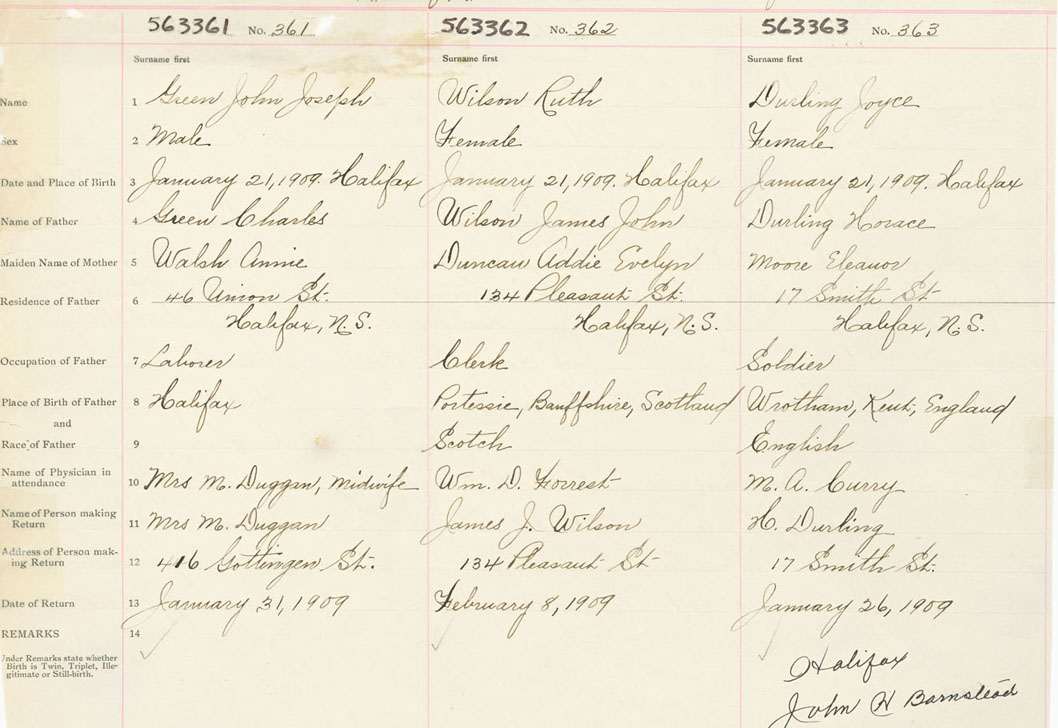 563361 No. 361 563362 No. 362 563363 No. 363
Surname first Surname first Surname first
Name 1 Green John Joseph Wilson Ruth Durling Joyce
Sex 2 Male Female Female
Date and Place of Birth 3 January 21, 1909. Halifax January 21, 1909. Halifax January 21, 1909. Halifax
Name of Father 4 Green Charles Wilson James John Durling Horace
Maiden Name of Mother 5 Walsh Annie Duncan Addie Evelyn Moore Eleanor
Residence of Father 6 46 Union St. 134 Pleasant St. 17 Smith St
Halifax, N.S. Halifax, N.S. Halifax, N.S.
Occupation of Father 7 Laborer Clerk Soldier
Place of Birth of Father 8 Halifax Portessie, Banffshire, Scotland Wrotham, Kent, England
and
Race of Father 9 Scotch English
Name of Physician in
attendance 10 Mrs M. Duggan, midwife Wm. D. Forrest M. A. Curry
Name of Person making
Return 11 Mrs M. Duggan James J. Wilson H. Durling
Address of Person mak-
ing Return 12 416 Gottingen St. 134 Pleasant St 17 Smith St.
Date of Return 13 January 31, 1909 February 8, 1909 January 26, 1909
REMARKS 14
Under Remarks state whether
Birth is Twin, Triplet, Ille-
gitimate or Still-birth.
Halifax
John H Barnstead